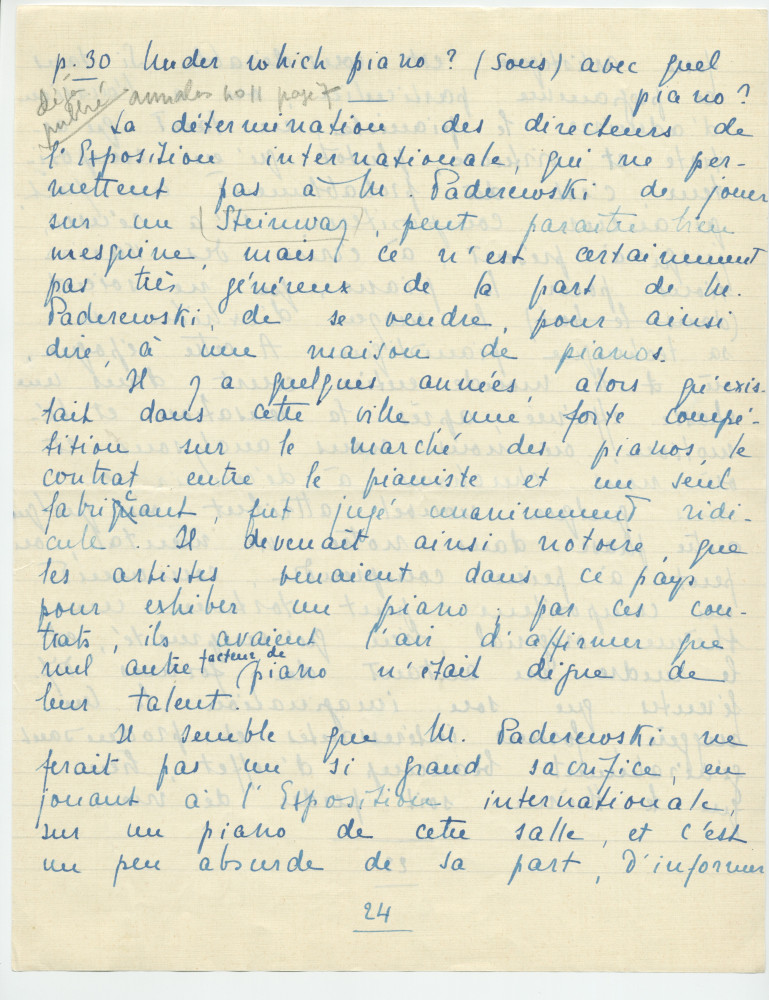 p. 30 Under which piano? (sous) avec quel
piano?
déjà
publié annales no 11 page 7
La détermination des directeurs de
l'Exposition internationale, qui ne per-
mettent pas à M. Paderewski de jouer
sur un (Steinway, peut paraître bien
mesquine, mais ce n'est certainement
pas très généreux de la part de M.
Paderewski, de se vendre, pour ainsi
dire, à une maison de pianos.
Il y a quelques années, alors qu'exis-
tait dans cette ville une forte compé-
tition sur le marché des pianos, le
contrat entre le pianiste et un seul
fabriquant, fut jugé unanimement ridi-
cule. Il devenait ainsi notoire, que
les artistes, venaient dans ce pays
pour exhiber un piano; par ces con-
trats, ils avaient l'air d'affirmer que
nul autre facteur de piano n'était digne de
leur talent.
Il semble que M. Paderewski ne
ferait pas un si grand sacrifice, en
jouant à l'Exposition internationale,
sur un piano de cette salle, et c'est
un peu absurde de sa part, d'informer
24